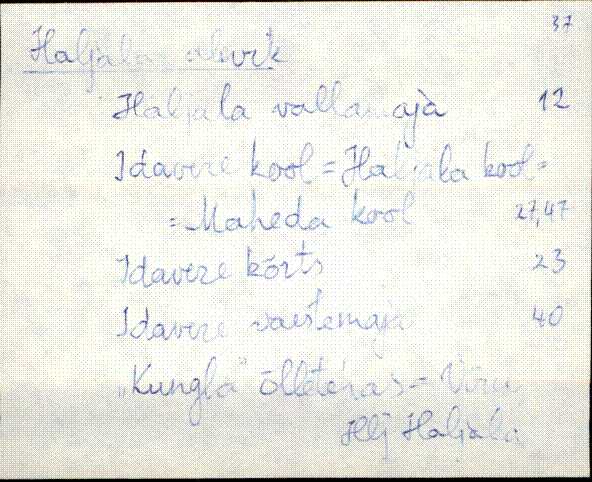 37
Haljala alevik
Haljala vallamaja 12
Idavere kool = Haljala kool =
= Maheda kool 27,47
Idavere kõrts 23
Idavere vaestemaja 40
„Kungla" õlletehas = Viru
Haljala